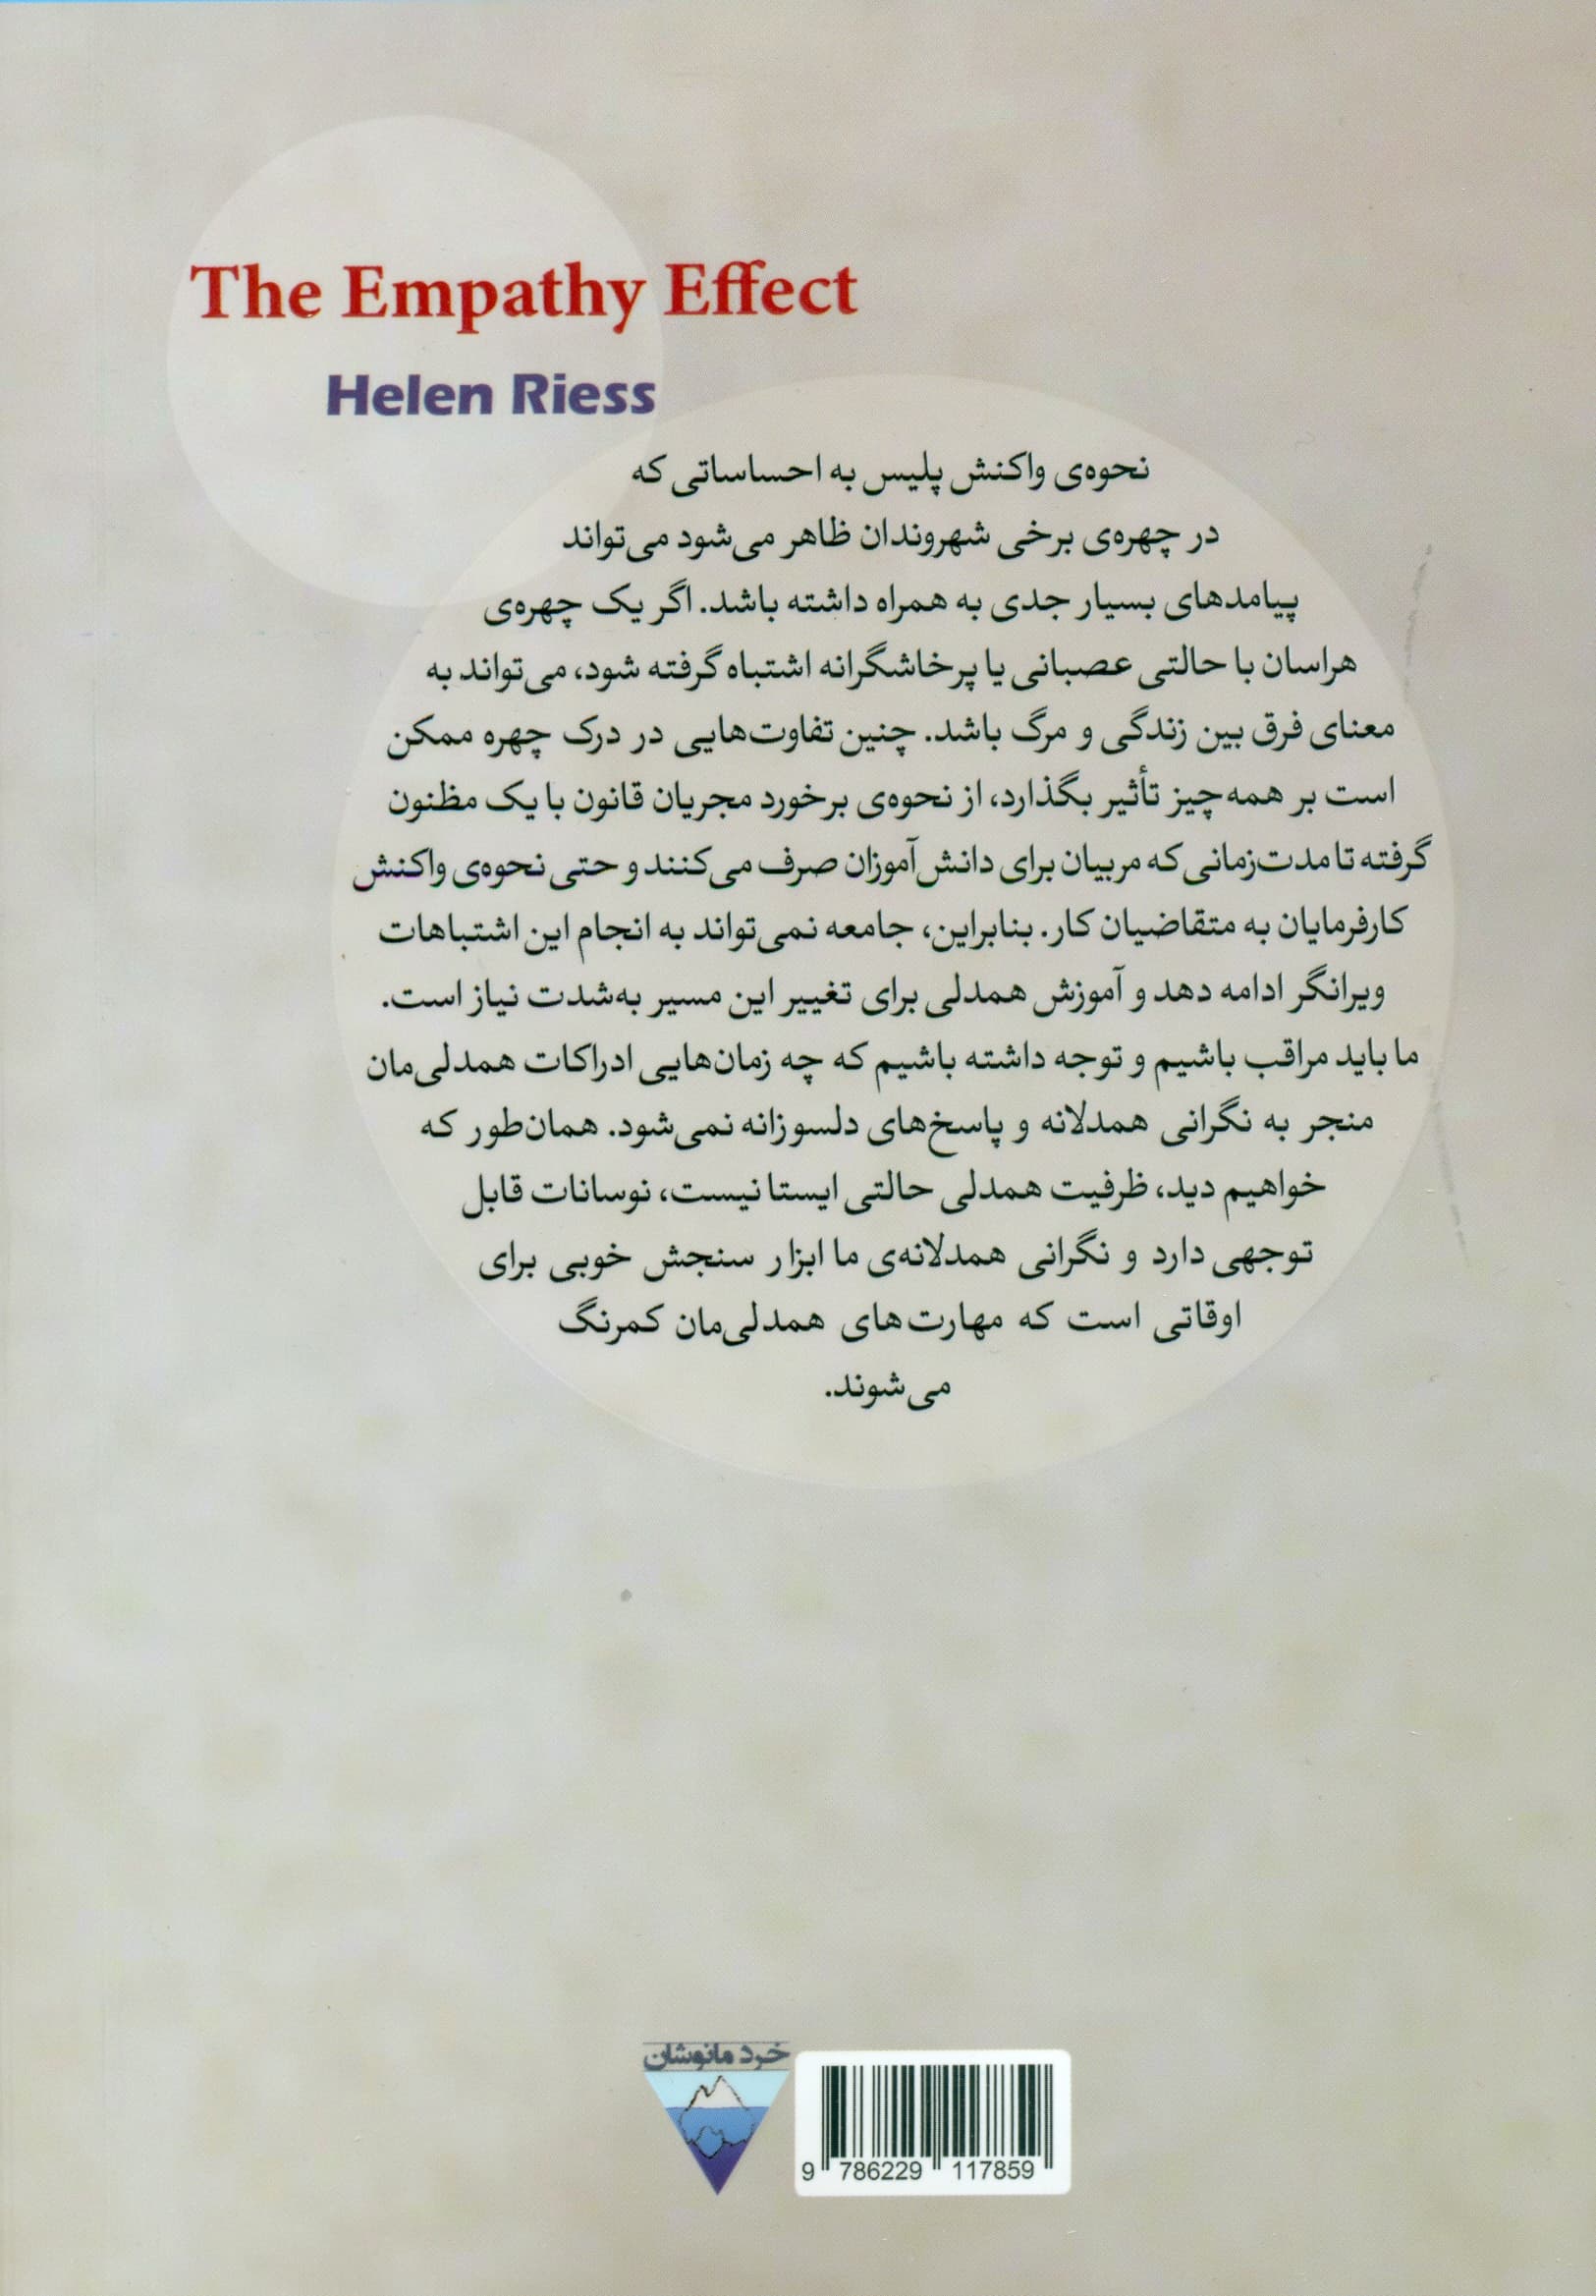 The Empathy Effect
Helen Riess
نحوه‌ی واکنش پلیس به احساساتی که
در چهره‌ی برخی شهروندان ظاهر می‌شود می‌تواند
پیامدهای بسیار جدی به همراه داشته باشد. اگر یک چهره‌ی
هراسان با حالتی عصبانی یا پرخاشگرانه اشتباه گرفته شود، می‌تواند به
معنای فرق بین زندگی و مرگ باشد. چنین تفاوت‌هایی در درک چهره ممکن
است بر همه‌چیز تأثیر بگذارد، از نحوه‌ی برخورد مجریان قانون با یک مظنون
گرفته تا مدت‌زمانی که مربیان برای دانش‌آموزان صرف می‌کنند و حتی نحوه‌ی واکنش
کارفرمایان به متقاضیان کار. بنابراین، جامعه نمی‌تواند به انجام این اشتباهات
ویرانگر ادامه دهد و آموزش همدلی برای تغییر این مسیر به‌شدت نیاز است.
ما باید مراقب باشیم و توجه داشته باشیم که چه زمان‌هایی ادراکات همدلی‌مان
منجر به نگرانی همدلانه و پاسخ‌های دلسوزانه نمی‌شود. همان‌طور که
خواهیم دید، ظرفیت همدلی حالتی ایستا نیست، نوسانات قابل
توجهی دارد و نگرانی همدلانه‌ی ما ابزار سنجش خوبی برای
اوقاتی است که مهارت‌های همدلی‌مان کمرنگ
می‌شوند.
خرد مانوشان
9 786229 117859